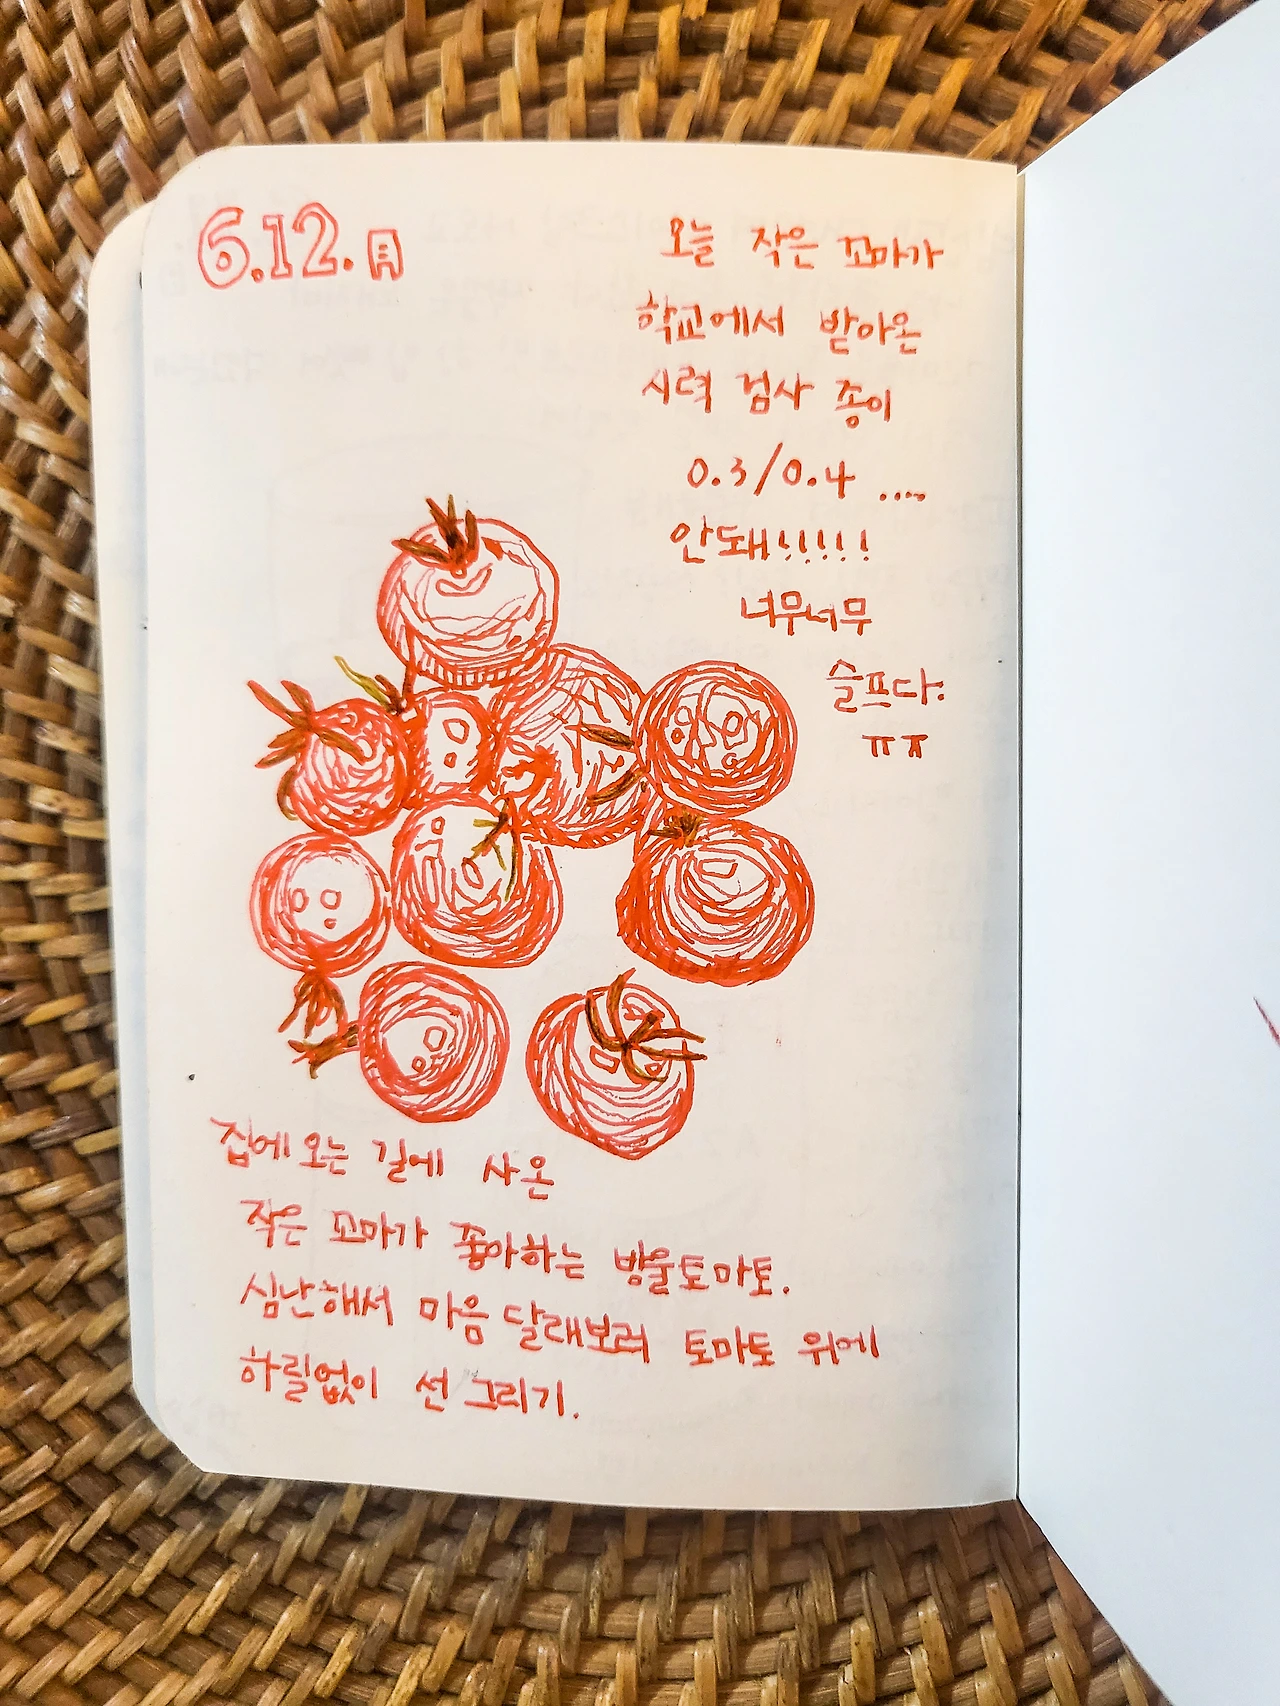 6.12.月
오늘 작은 꼬마가
학교에서 받아온
시력 검사 종이
0.3/0.4 ....
안돼!!!!!
너무너무
슬프다.
ㅠㅠ
집에 오는 길에 사온
작은 꼬마가 좋아하는 방울토마토.
심난해서 마음 달래보려 토마토 위에
하릴없이 선 그리기.